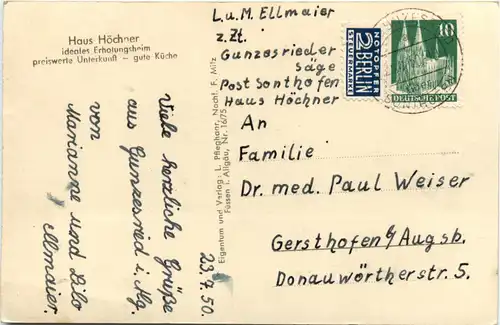 Haus Höchner
ideales Erholungsheim
preiswerte Unterkunft – gute Küche
Viele herzliche Grüße
aus Gunzesried i. Allg.
von
Marianne und Lilo
Ellmaier
23.7.50.
Eigentum und Verlag: L. Pfleghaar, Nachf. F. Mitz
Füssen i. Allgäu, Nr. 16/75
L. u. M. Ellmaier
z. Zt.
Gunzesrieder
Säge
Post Sonthofen
Haus Höchner
NOTOPFER
2 BERLIN
STEUERMARKE
10
DEUTSCHE POST
An
Familie
Dr. med. Paul Weiser
Gersthofen b/ Augsb.
Donauwörtherstr. 5.